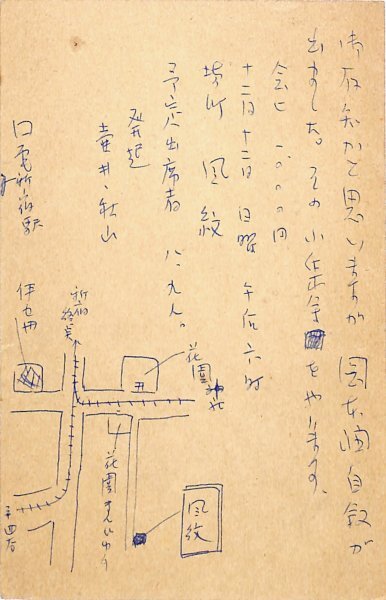 御存知かと思いますが 岡本潤自叙が
出ました。その小集会をやります。
会ヒ 一〇〇〇円
十二月十二日 日曜 午后六時
場所 風紋
予定人出席者 八、九人。
発起
壷井・秋山
口電新宿駅
伊セ丹
新宿終点
花園神社
花園まんじゅう
風紋